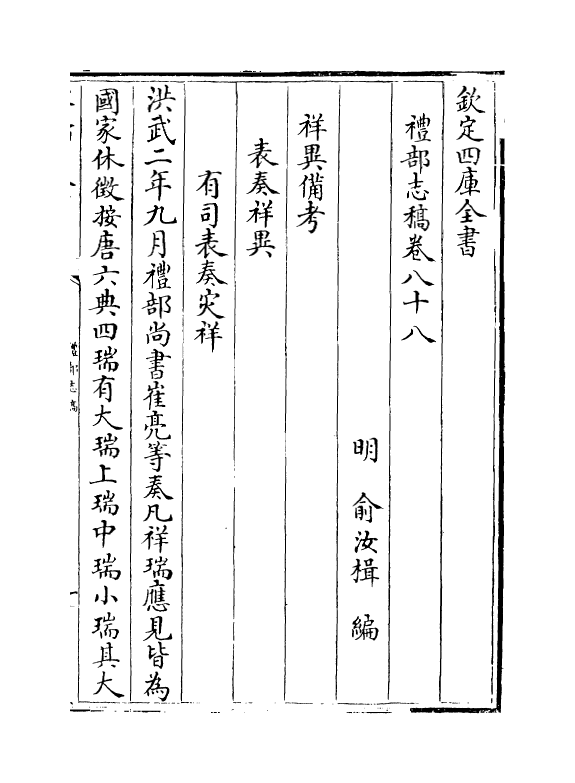 欽定四庫全書
禮部志稿卷八十八
明 俞汝楫 編
祥異備考
表奏祥異
有司表奏災祥
洪武二年九月禮部尚書崔亮等奏凡祥瑞應見皆為
國家休徵按唐六典四瑞有大瑞上瑞中瑞小瑞其大